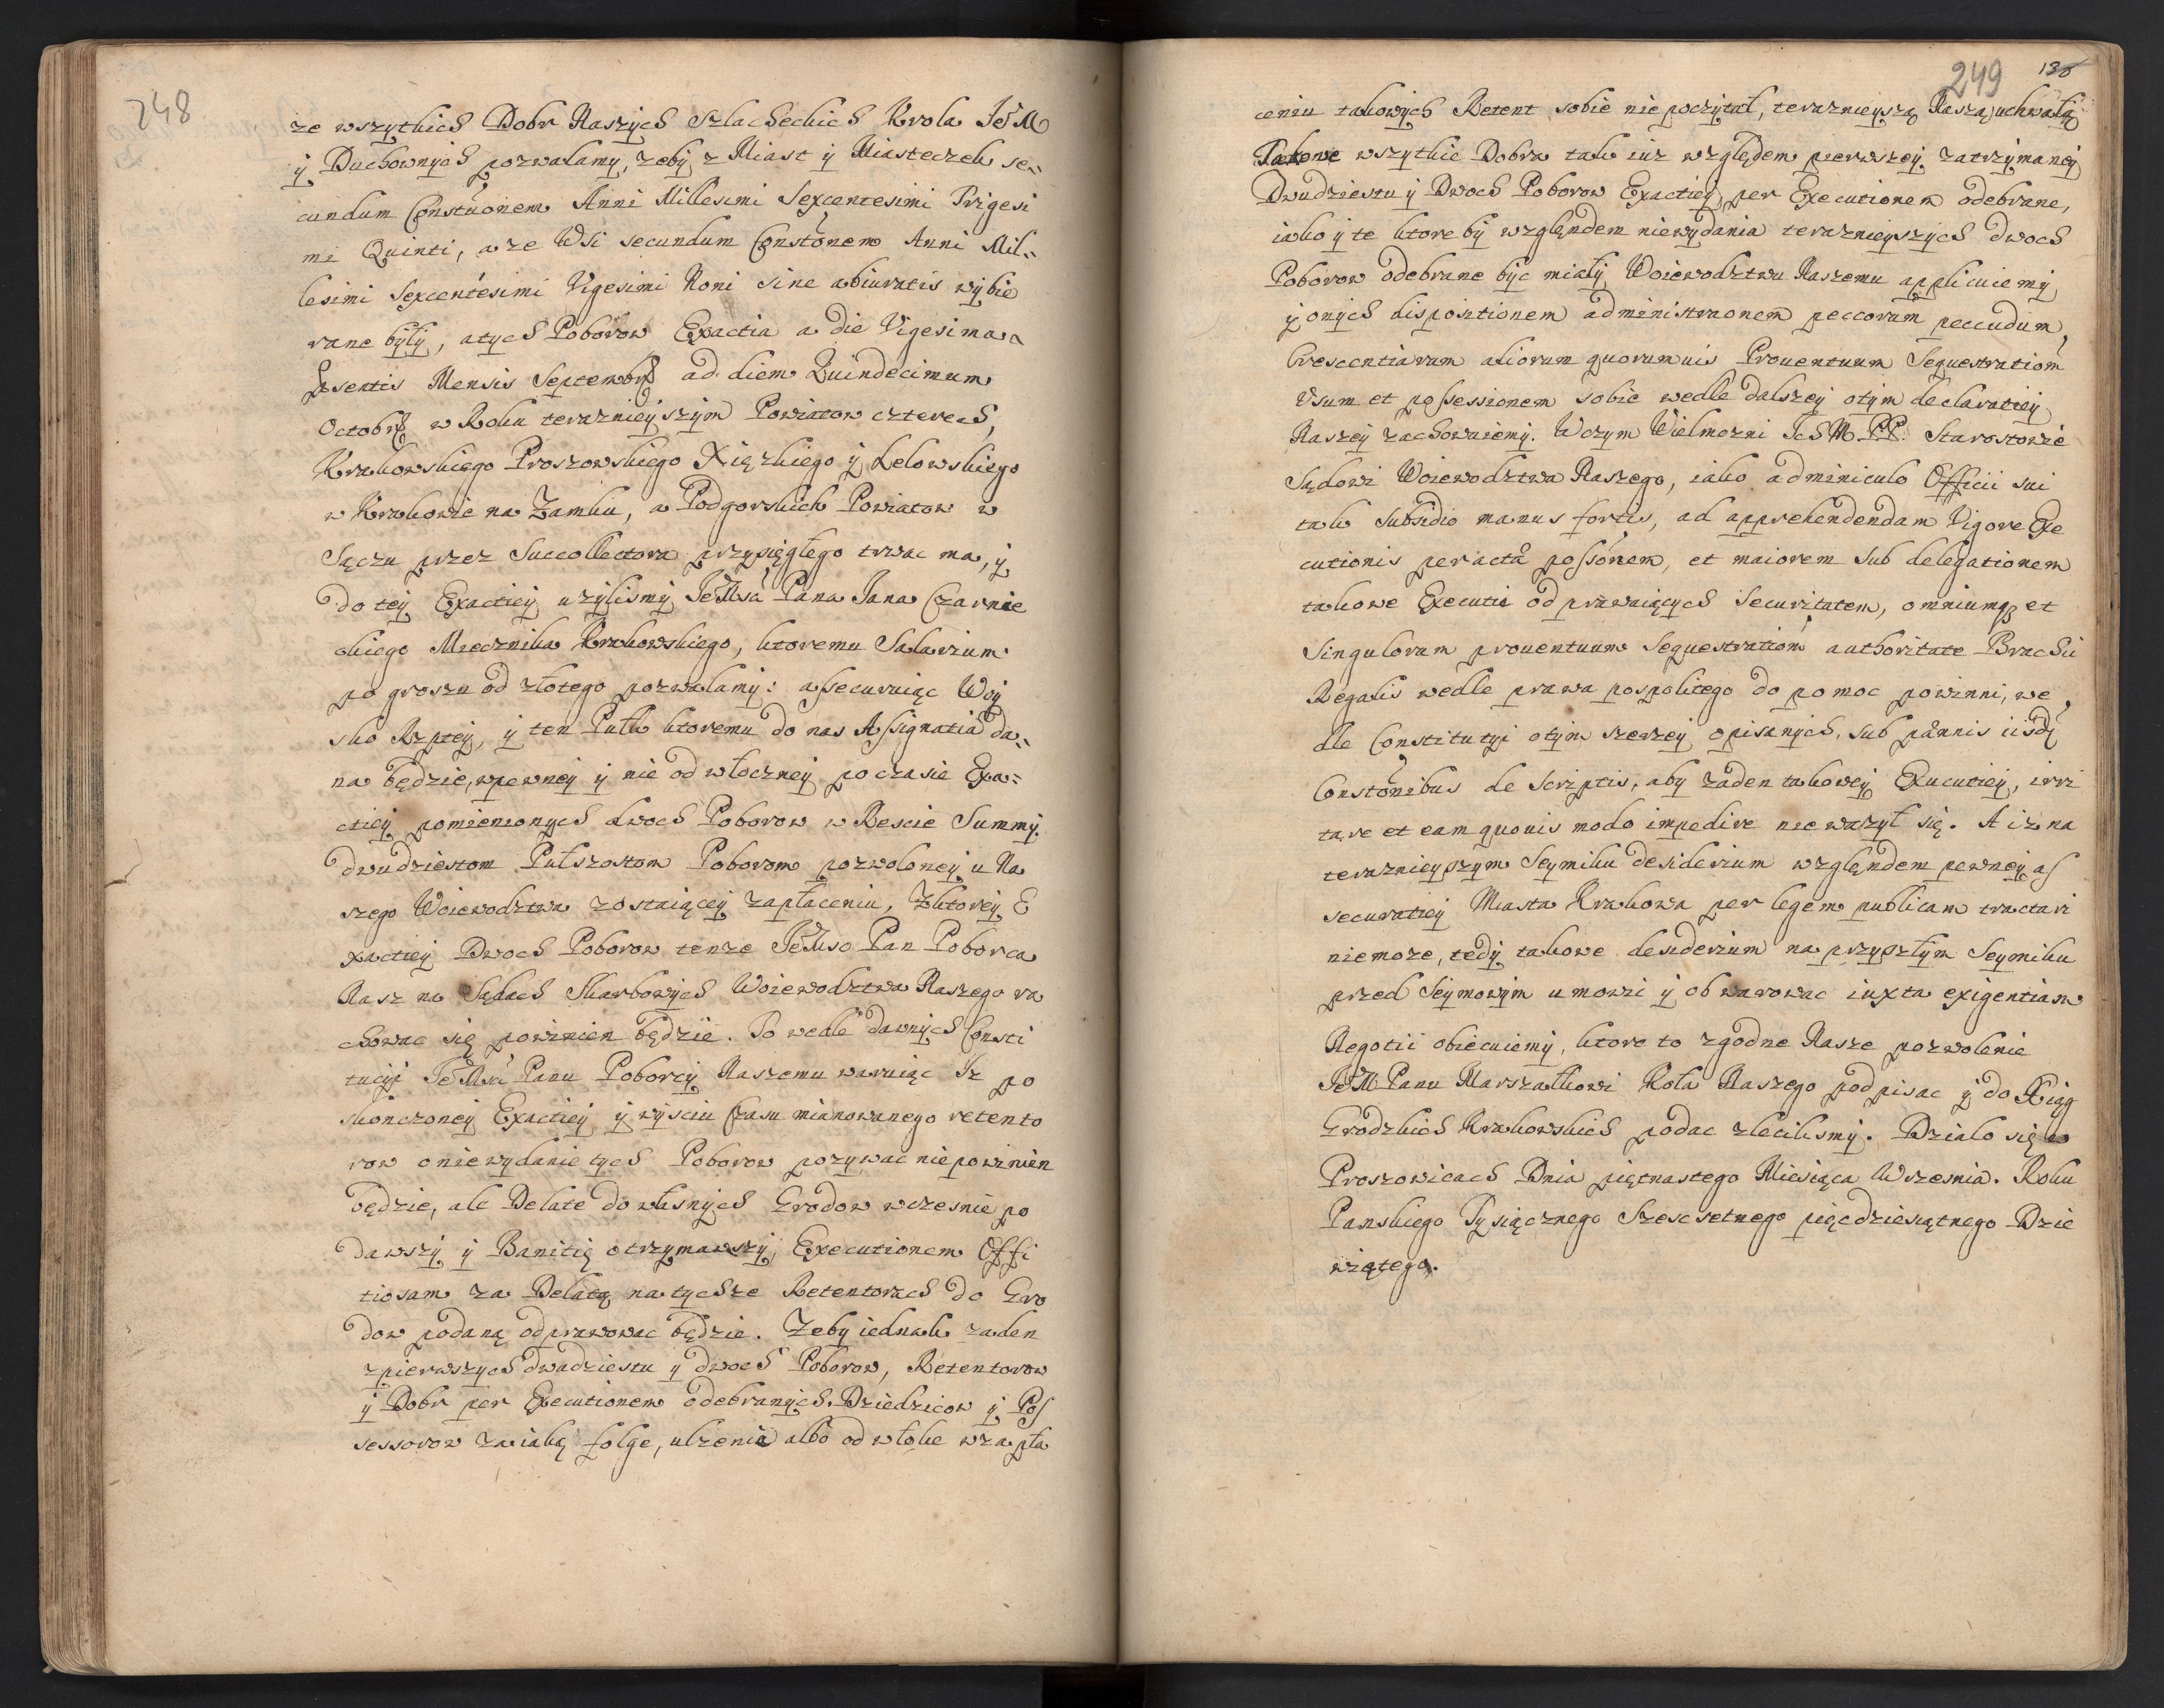 248
ze wszytkich Dobr Naszych Szlacheckich Krola JeͦM
y Duchownych pozwalamy, zeby z Miast y Miasteczek se=
cundum Constuõnem Anni Millesimi Sexcentesimi Trigesi
mi Quinti, a ze Wsi secundum Constõnem Anni Mil=
lesimi Sexcentesimi Vigesimi Noni sine abiuratis wybie
rane były, a tych Poborow Exactia a die Vigesima
Psentis Mensis Septembrs ad diem Quindecimum
Octobrs w Roku teraznieyszym Powiatow czterech,
Krakowskiego Proszowskiego Xiązkiego y Lelowskiego
w Krakowie na Zamku, a Podgorskich Powiatow w
Sączu przez Succollectora przysięgłego trwac ma, y
do tey Exactiey uzylismy JeͦMsci Pana Jana Czarnie
ckiego Miecznika Krakowskiego, ktoremu Salarium
po groszu od złotego pozwalamy: assecuruiąc Woy
sko Rzptey, y ten Pułk ktoremu do nas Assignatia da=
na będzie, wpewney y nie odwłoczney po czasie Exa=
ctiey pomienionych dwoch Poborow w Rescie Summy
dwudziestom Pułszostom Poborom pozwoloney u Na
szego Woiewodztwa zostaiącey zapłaceniu, Zktorey E
xactiey Dwoch Poborow tenze JeͦMsc Pan Poborca
Nasz na Sądach Skarbowych Woiewodztwa Naszego ra
chowac się powinien będzie. To wedle dawnych Consti
tucyi JeͦMsci Panu Poborcy Naszemu waruiąc Iz po
skonczoney Exactiey y wysciu Czasu mianowanego retento
row o niewydanie tych Poborow pozywac nie powinien
będzie, ale Delate do własnych Grodow wczesnie po
dawszy y Banitię otrzymawszy, Executionem Offi
tiosam za Delatą na tychze Retentorach do Gro
dow podaną odprawowac będzie. Zeby iednak zaden
z pierwszych dwadziestu y dwoch Poborow, Retentorow
y Dobr per Executionem odebranych Dziedzicow y Pos
sessorow za iaką folge, ulzenie albo odwłoke w zapła
249 138
ceniu takowych Retent sobie nie poczytał, teraznieyszą Naszą uchwałą
Takowe wszytkie Dobra tak iuz względem pierwszey zatrzymaney
Dwudziestu y Dwoch Poborow Exactiey per Executionem odebrane,
iako y te ktore by względem niewydania teraznieyszych dwoch
Poborow odebrane byc miały Woiewodztwu Naszemu applicuiemy
y onych dispositionem administraonem peccorum peccudum,
Crescentiarum aliorum quorumuis Prouentuum Sequestration
Vsum et possessionem sobie wedle dalszey otym declaratiey
Naszey zachowuiemy. Wczym Wielmozni IchM PP. Starostowie
Sądowi Woiewodztwa Naszego, iako adminiculo Officii sui
tak Subsidio manus fortis, ad apprehendendam Vigore Exe
cutionis peractã possõnem, et maiorem Sub delegationem
takowe Executie odprawuiących Securitatem, omniumq et
Singulorum prouentuum Sequestration authoritate Brachii
Regalis wedle prawa pospolitego do pomoc powinni, we
dle Constitutyi otym szerzey opisanych, sub pænis iisdẽ
Constõnibus de Scriptis, aby zaden takowey Exucutiey, irri
tare et eam quouis modo impedire nie wazył się. A iz na
teraznieyszym Seymiku desiderium względem pewney as
securatiey Miasta Krakowa per legem publicam tractari
niemoze, tedy takowe desiderium na przyszłym Seymiku
przed Seymowym umowi y obwarowac iuxta exigentiam
Negotii obiecuiemy, ktore to zgodne Nasze pozwolenie
JeͦM Panu Marszałkowi Koła Naszego podpisac y do Xiąg
Grodzkich Krakowskich podac zlecilismy. Działo się w
Proszowicach Dnia piętnastego Miesiąca Wrzesnia. Roku
Panskiego Tysiącznego Szescsetnego pięcdziesiątnego Dzie
wiątego.